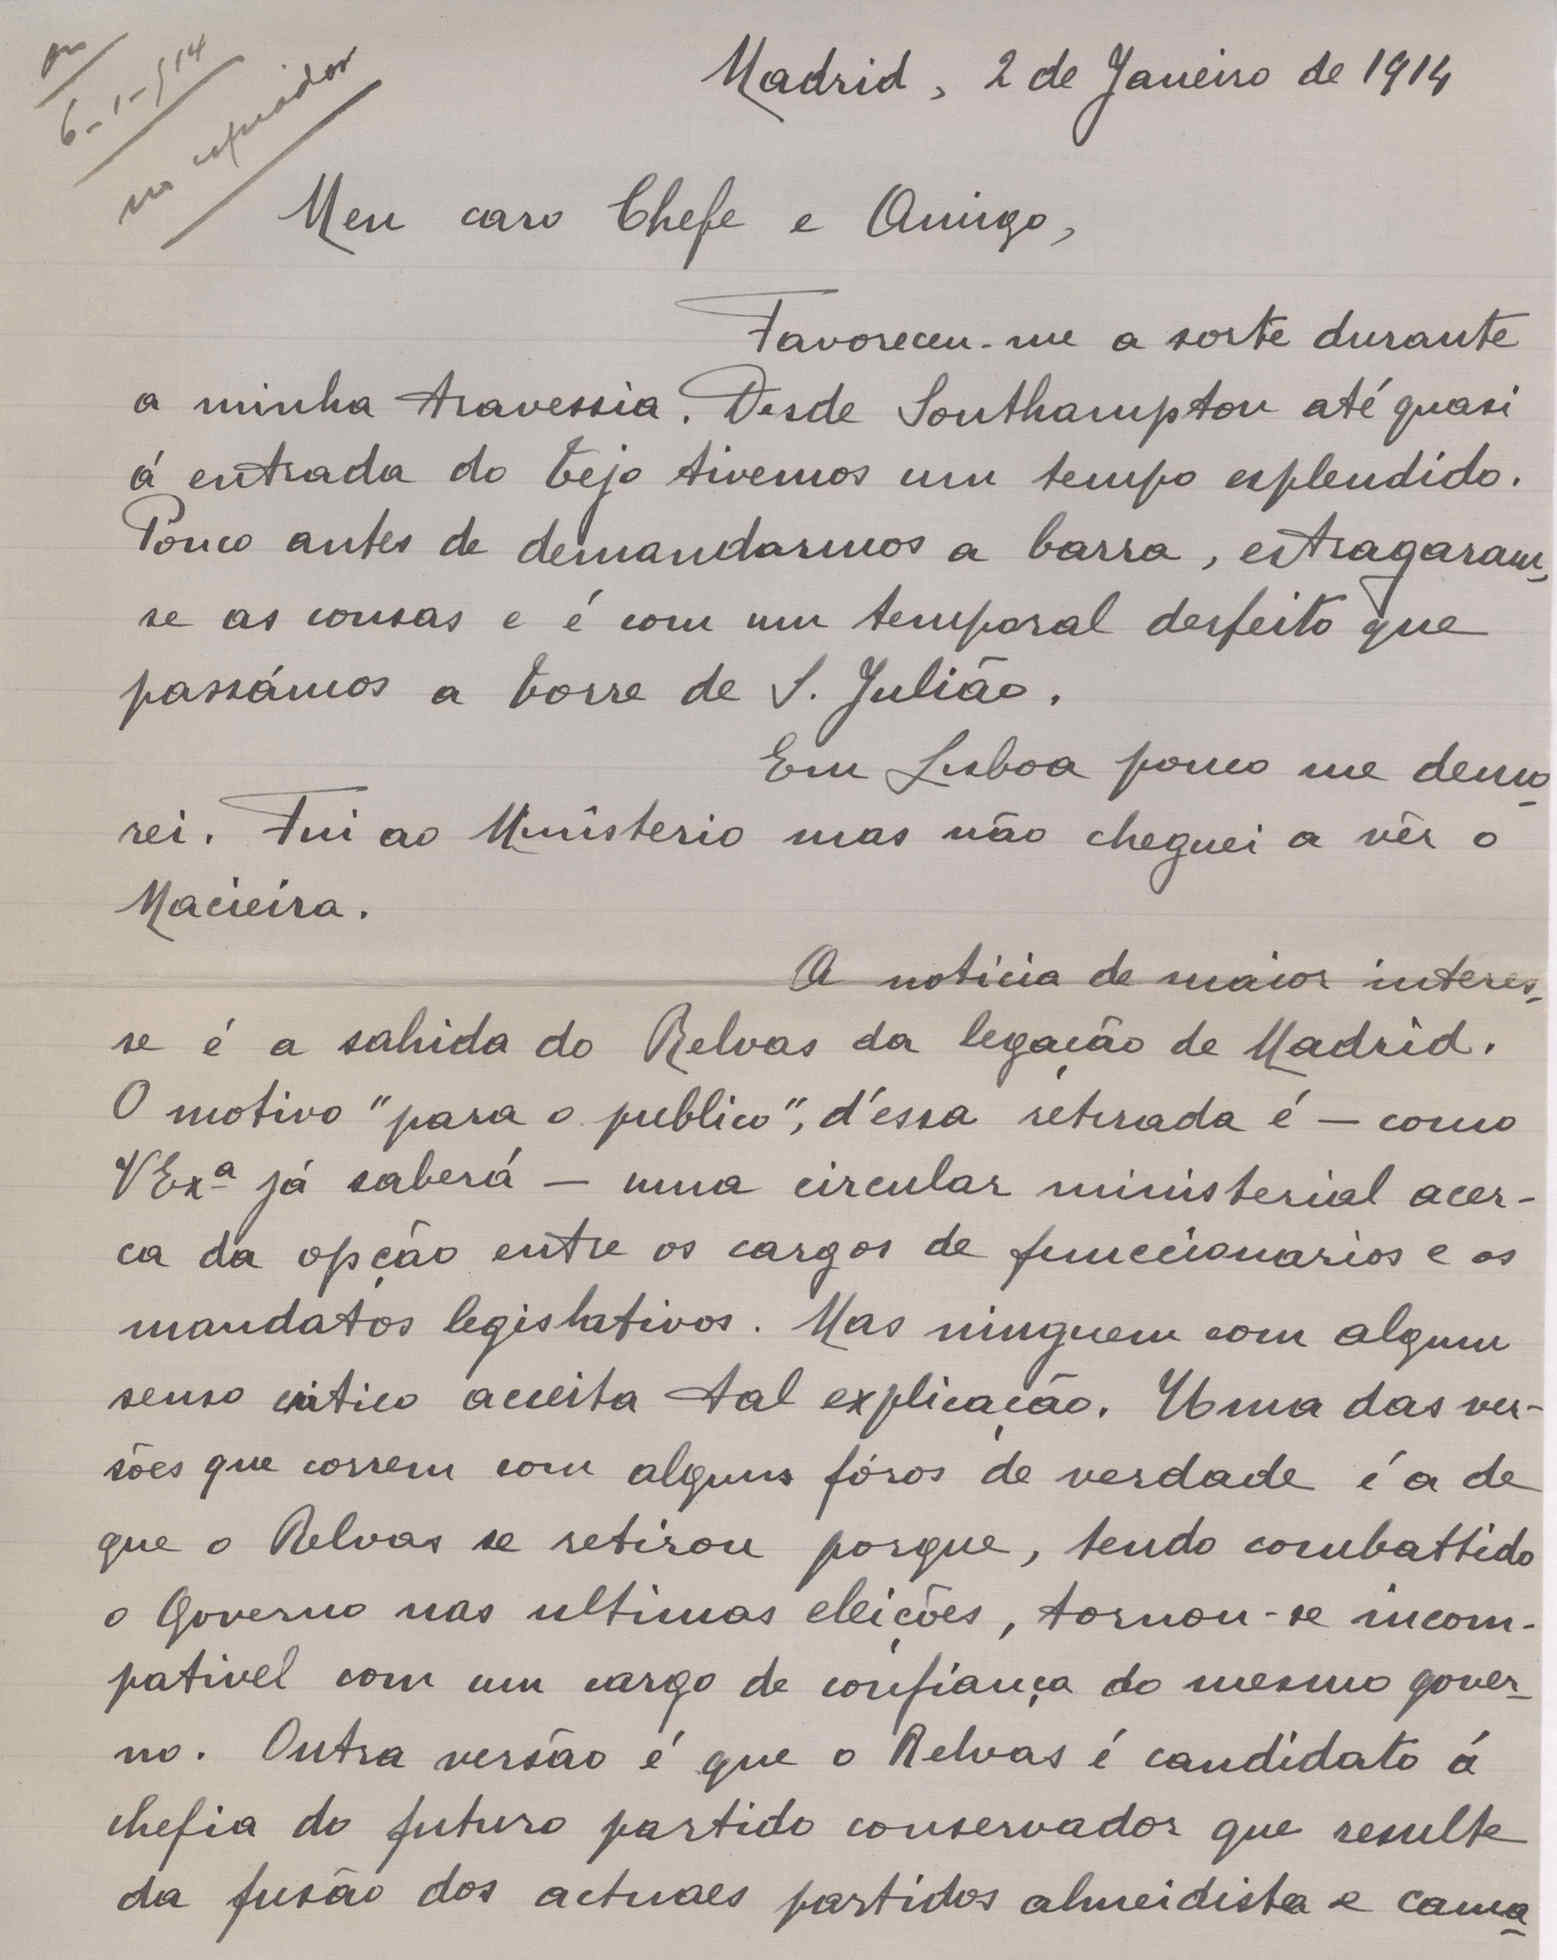 6-1-914
no copiador
Madrid, 2 de Janeiro de 1914
Meu caro Chefe e Amigo,
Favoreceu-me a sorte durante
a minha travessia. Desde Southampton até quasi
á entrada do Tejo tivemos um tempo esplendido.
Pouco antes de demandarmos a barra, estragaram-
se as cousas e é com um temporal desfeito que
passámos a torre de S. Julião.
Em Lisboa pouco me demo-
rei. Fui ao Ministerio mas não cheguei a vêr o
Macieira.
A noticia de maior interes-
se é a sahida do Relvas da legação de Madrid.
O motivo "para o publico", d'essa retirada é — como
VExª já saberá — uma circular ministerial acer-
ca da opção entre os cargos de funccionarios e os
mandatos legislativos. Mas ninguem com algum
senso critico acceita tal explicação. Uma das ver-
sões que correm com alguns fóros de verdade é a de
que o Relvas se retirou porque, tendo combattido
o Governo nas ultimas eleições, tornou-se incom-
pativel com um cargo de confiança do mesmo gover-
no. Outra versão é que o Relvas é candidato á
chefia do futuro partido conservador que resulte
da fusão dos actuaes partidos almeidista e cama-